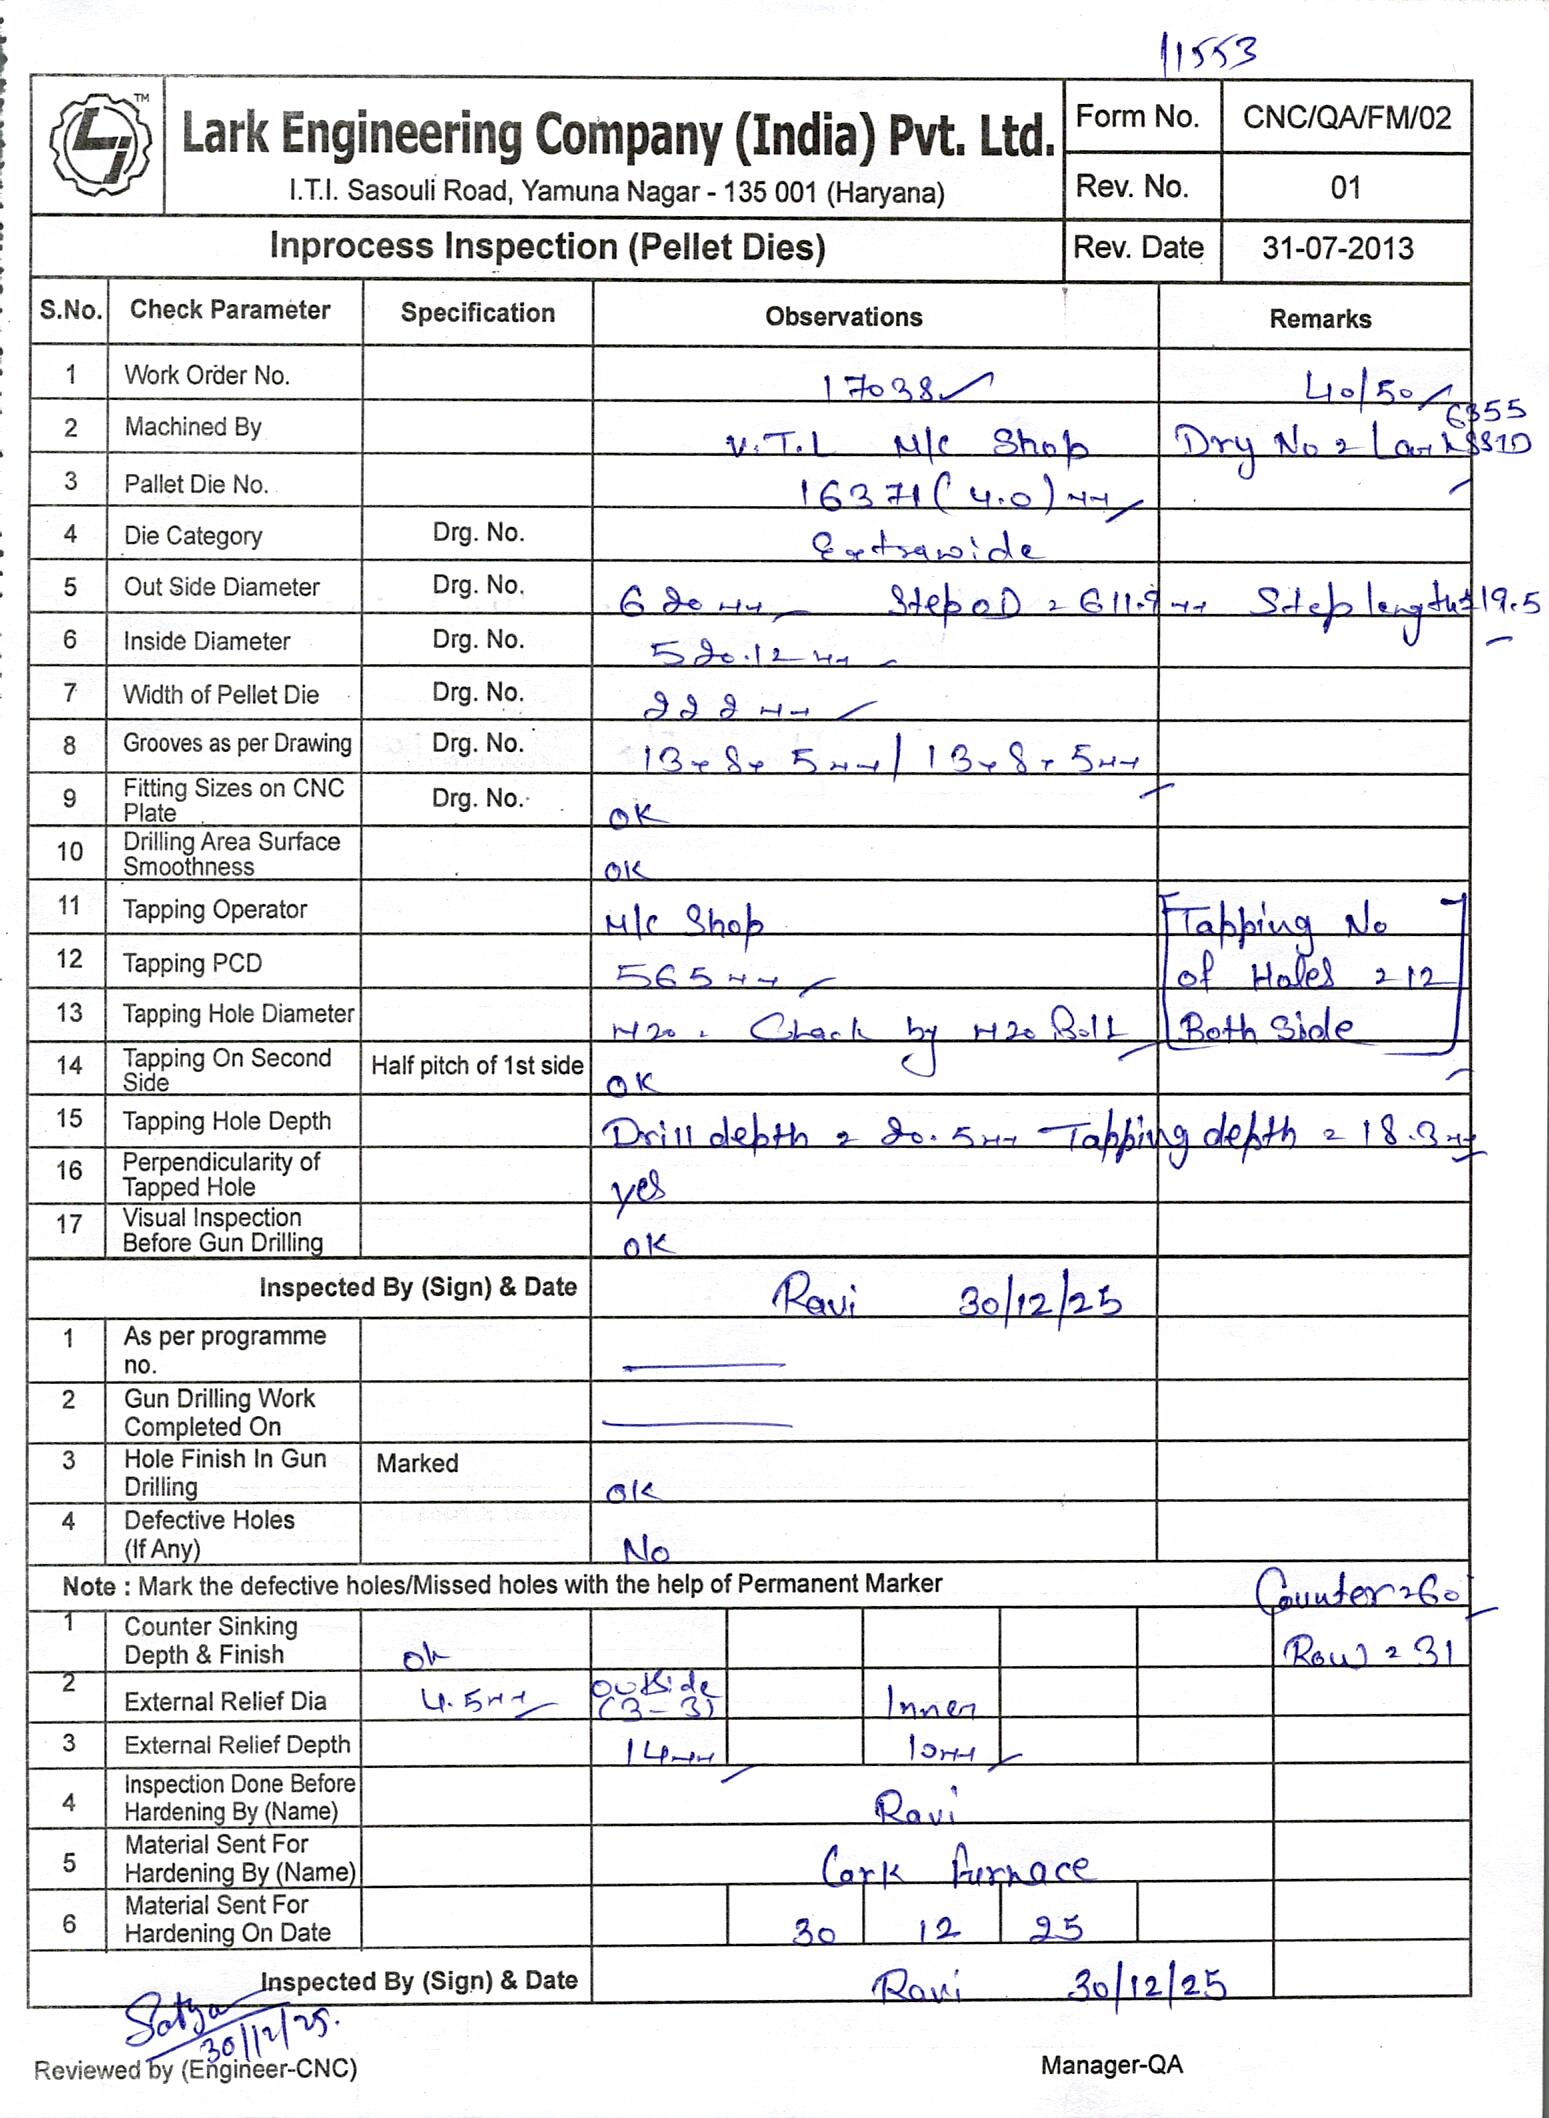 11553
TM
Lark Engineering Company (India) Pvt. Ltd.
I.T.I. Sasouli Road, Yamuna Nagar - 135 001 (Haryana)
Form No. CNC/QA/FM/02
Rev. No. 01
Inprocess Inspection (Pellet Dies) Rev. Date 31-07-2013
S.No. Check Parameter Specification Observations Remarks
1 Work Order No. 17038 40/50
2 Machined By V.T.L M/C Shop Dry No = 6355
3 Pallet Die No. 16371 (4.0) mm
4 Die Category Drg. No. Extrawide
5 Out Side Diameter Drg. No. 620 mm Step OD = 611.9 mm Step length = 19.5
6 Inside Diameter Drg. No. 520.12 mm
7 Width of Pellet Die Drg. No. 222 mm
8 Grooves as per Drawing Drg. No. 13 x 8 x 5 mm / 13 x 8 x 5 mm
9 Fitting Sizes on CNC Plate Drg. No. OK
10 Drilling Area Surface Smoothness OK
11 Tapping Operator M/C Shop Tapping No
12 Tapping PCD 565 mm of Holes = 12
13 Tapping Hole Diameter M20. Check by M20 Bolt Both Side
14 Tapping On Second Side Half pitch of 1st side OK
15 Tapping Hole Depth Drill depth = 20.5 mm Tapping depth = 18.3 mm
16 Perpendicularity of Tapped Hole yes
17 Visual Inspection Before Gun Drilling OK
Inspected By (Sign) & Date Ravi 30/12/25
1 As per programme no.
2 Gun Drilling Work Completed On
3 Hole Finish In Gun Drilling Marked OK
4 Defective Holes (If Any) No
Note : Mark the defective holes/Missed holes with the help of Permanent Marker Counter = 60
1 Counter Sinking Depth & Finish Ok Row = 31
2 External Relief Dia 4.5 mm Outside (3-3) Inner
3 External Relief Depth 14 mm 10 mm
4 Inspection Done Before Hardening By (Name) Ravi
5 Material Sent For Hardening By (Name) Lark Furnace
6 Material Sent For Hardening On Date 30 12 25
Inspected By (Sign) & Date Ravi 30/12/25
Satya
30/12/25.
Reviewed by (Engineer-CNC) Manager-QA